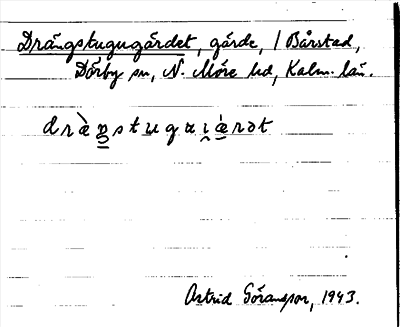 Drängstugugärdet, gärde, i Bårstad,
Dörby sn, N. Möre hd, Kalm. län.
drὰŋstuguιæ̀rət
Astrid Göransson, 1943.